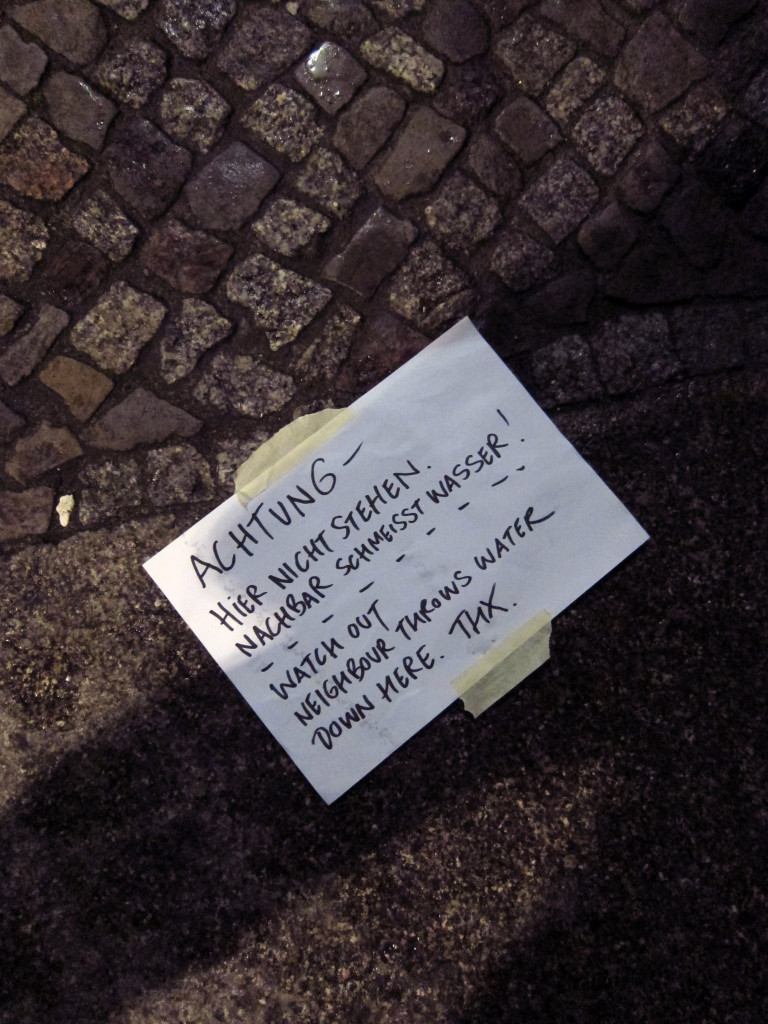 ACHTUNG –
HIER NICHT STEHEN.
NACHBAR SCHMEISST WASSER!
- - - - - - - - -
WATCH OUT
NEIGHBOUR THROWS WATER
DOWN HERE. THX.